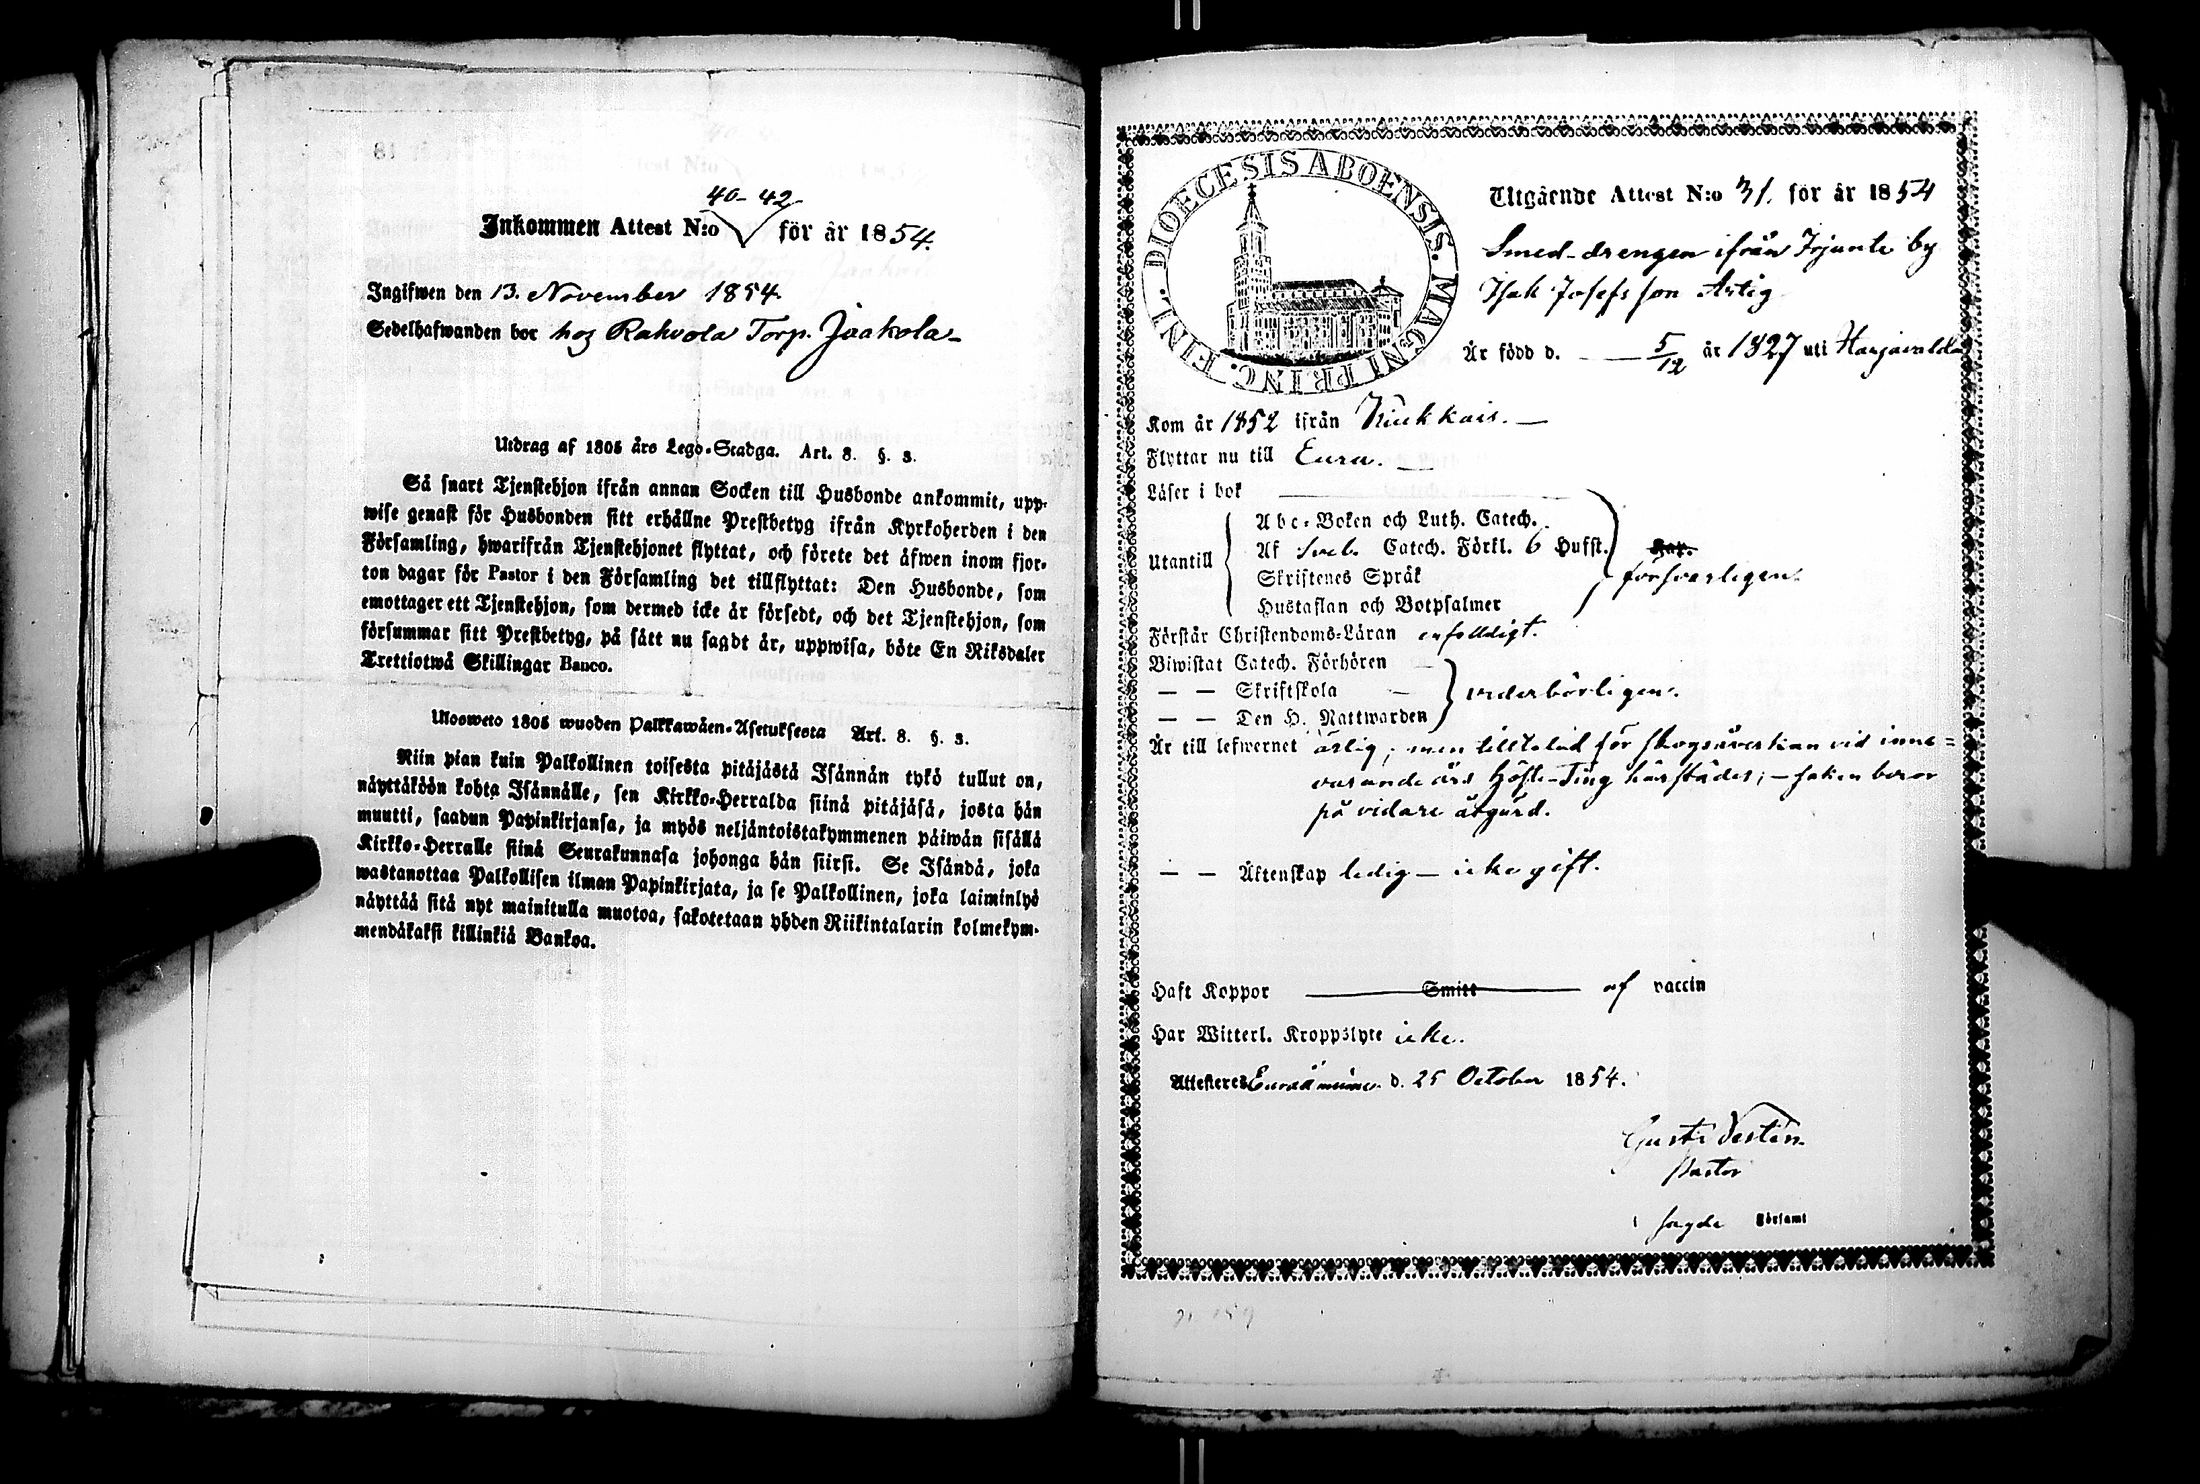 40-42
Inkommen Attest N:o för år 1854.
Ingifwen den 13. November 1854
Sedelhafwanden bor hos Rahvola Torp. Jaakola
Utdrag af 1805 års Lego-Stadga. Art. 8. §. 3.
Så snart Tjenstehjon ifrån annan Socken till Husbonde ankommit, upp-
wise genast för Husbonden sitt erhållne Prestbetyg ifrån Kyrkoherden i den
Församling, hwarifrån Tjenstehjonet flyttat, och förete det äfwen inom fjor-
ton dagar för Pastor i den Församling det tillflyttat: Den Husbonde, som
emottager ett Tjenstehjon, som dermed icke är försedt, och det Tjenstehjon, som
försummar sitt Prestbetyg, på sätt nu sagdt är, uppwisa, böte En Riksdaler
Trettiotwå Skillingar Banco.
Ulosweto 1805 wuoden Palkkawäen-Asetuksesta Art. 8. §. 3.
Niin pian kuin Palkollinen toisesta pitäjästä Isännän tykö tullut on,
näyttäköön kohta Isännälle, sen Kirkko-Herralda siinä pitäjäsä, josta hän
muutti, saadun Papinkirjansa, ja myös neljäntoistakymmenen päiwän sisällä
Kirkko-Herralle siinä Seurakunnasa johonga hän siirsi. Se Isändä, joka
wastanottaa Palkollisen ilman Papinkirjata, ja se Palkollinen, joka laiminlyö
näyttää sitä nyt mainitulla muotoa, sakotetaan yhden Riikintalarin kolmekym-
mendäkaksi killinkiä Bankoa.
DIOECESIS ABOENSIS. MAGNI PRINC. FINL.
Utgående Attest N:o 31. för år 1854
Smed-drengen ifrån Irjante by
Isak Josefsson Artig
Är född d. 5/12 år 1827 uti Harjavalda
Kom år 1852 ifrån Kiukkais.
Flyttar nu till Eura.
Läser i bok
Utantill
Abc-Boken och Luth. Catech.
Af Sveb. Catech. Förkl. 6 Hufst. Kap.
Skriftenes Språk försvarligen.
Hustaflan och Botpsalmer
Förstår Christendoms-Läran enfalldigt.
Biwistat Catech. Förhören
— — Skriftskola vederbörligen.
— — Den H. Nattwarden
Är till lefwernet ärlig; men tilltalad för skogsåverkan vid inne=
varande års Höste-Ting härstädes; – saken beror
på vidare åtgärd.
— — Äktenskap ledig – icke gift.
Haft Koppor Smitt af vaccin
Har Witterl. Kroppslyte icke.
Attesteres Euraåminne d. 25 October 1854.
Gust. Vestén
Pastor
i sagde Församl